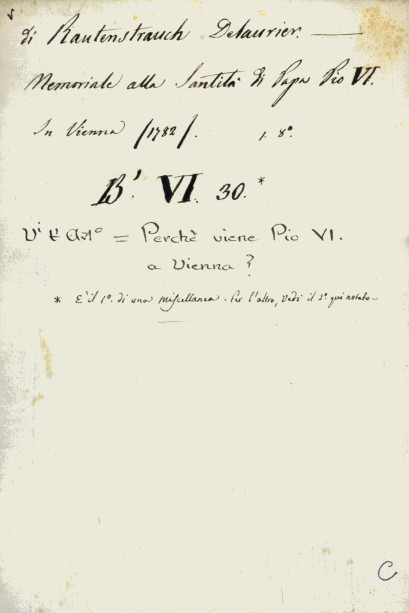 di Rautenstrauch Delaurier.
Memoriale alla Santità di Papa Pio VI.
In Vienna /1782/. 1. 8º.
B'. VI. 30.*
Vi è Artº = Perchè viene Pio VI.
a Vienna?
* E' il 1º. di una Miscellanea. Per l'altro, Vedi il 2º. qui notato.
C